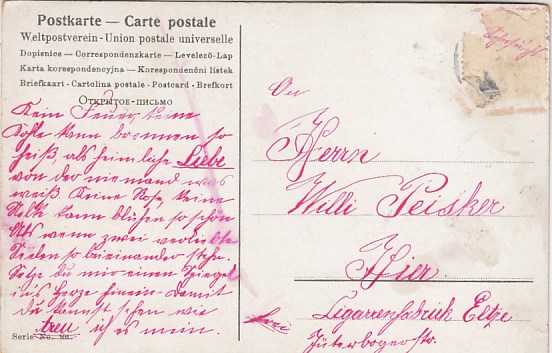 Postkarte — Carte postale
Weltpostverein - Union postale universelle
Dopisnice — Correspondenzkarte — Levelező-Lap
Karta korespondencyjna — Korespondenční lístek
Briefkaart - Cartolina postale - Postcard - Brefkort
Открытое-письмо
Kein Feuer, keine
Kohle kann brennen so
heiß, als heimliche Liebe
von der niemand was
weiß. Keine Rose, keine
Nelke kann blühen so schön
Als wenn zwei verliebte
Seelen so beieinander stehn.
Setze du mir einen Spiegel
ins Herze hinein damit
Du kannst sehen wie
treu ich es mein.
Serie No.
An
Herrn
Willi Peisker
Hier.
Cigarrenfabrik Eltze
Jüterbogerstr.